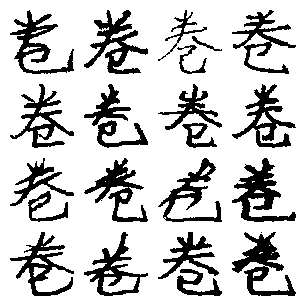 卷卷卷卷
卷卷卷卷
卷卷卷卷
卷卷卷卷